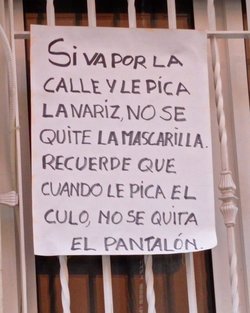 SI VA POR LA
CALLE Y LE PICA
LA NARIZ, NO SE
QUITE LA MASCARILLA.
RECUERDE QUE
CUANDO LE PICA EL
CULO, NO SE QUITA
EL PANTALÓN.